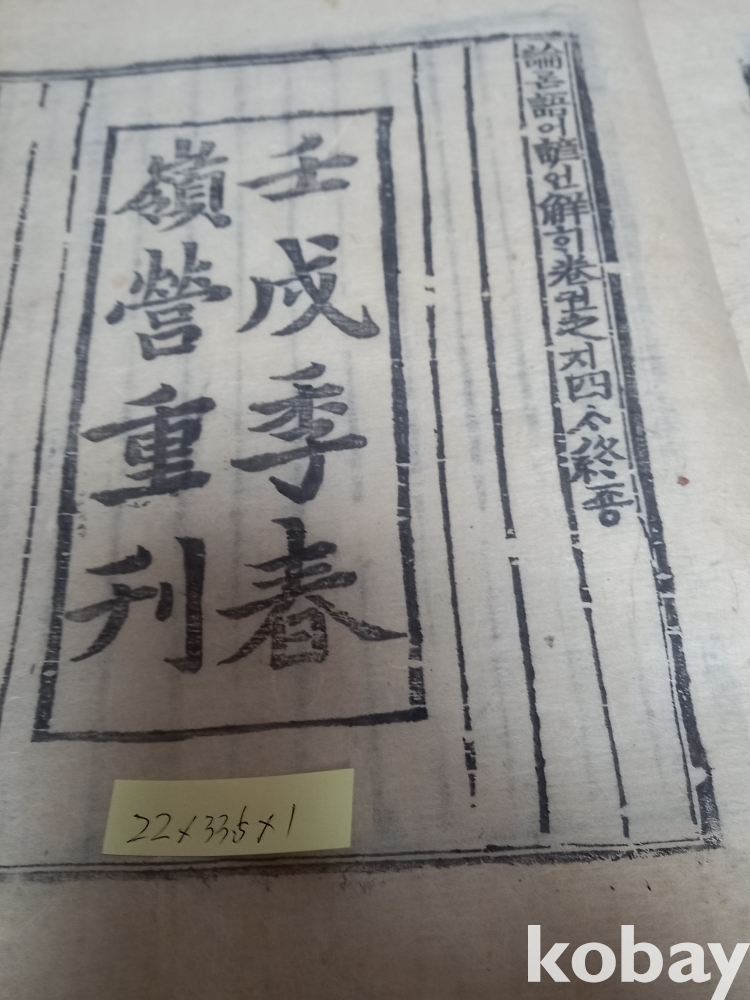 論론語어諺언觧ᄒᆡ卷권之지四ᄉᆞ終죵
壬戌季春
嶺營重刊
22x33.5x1
kobay